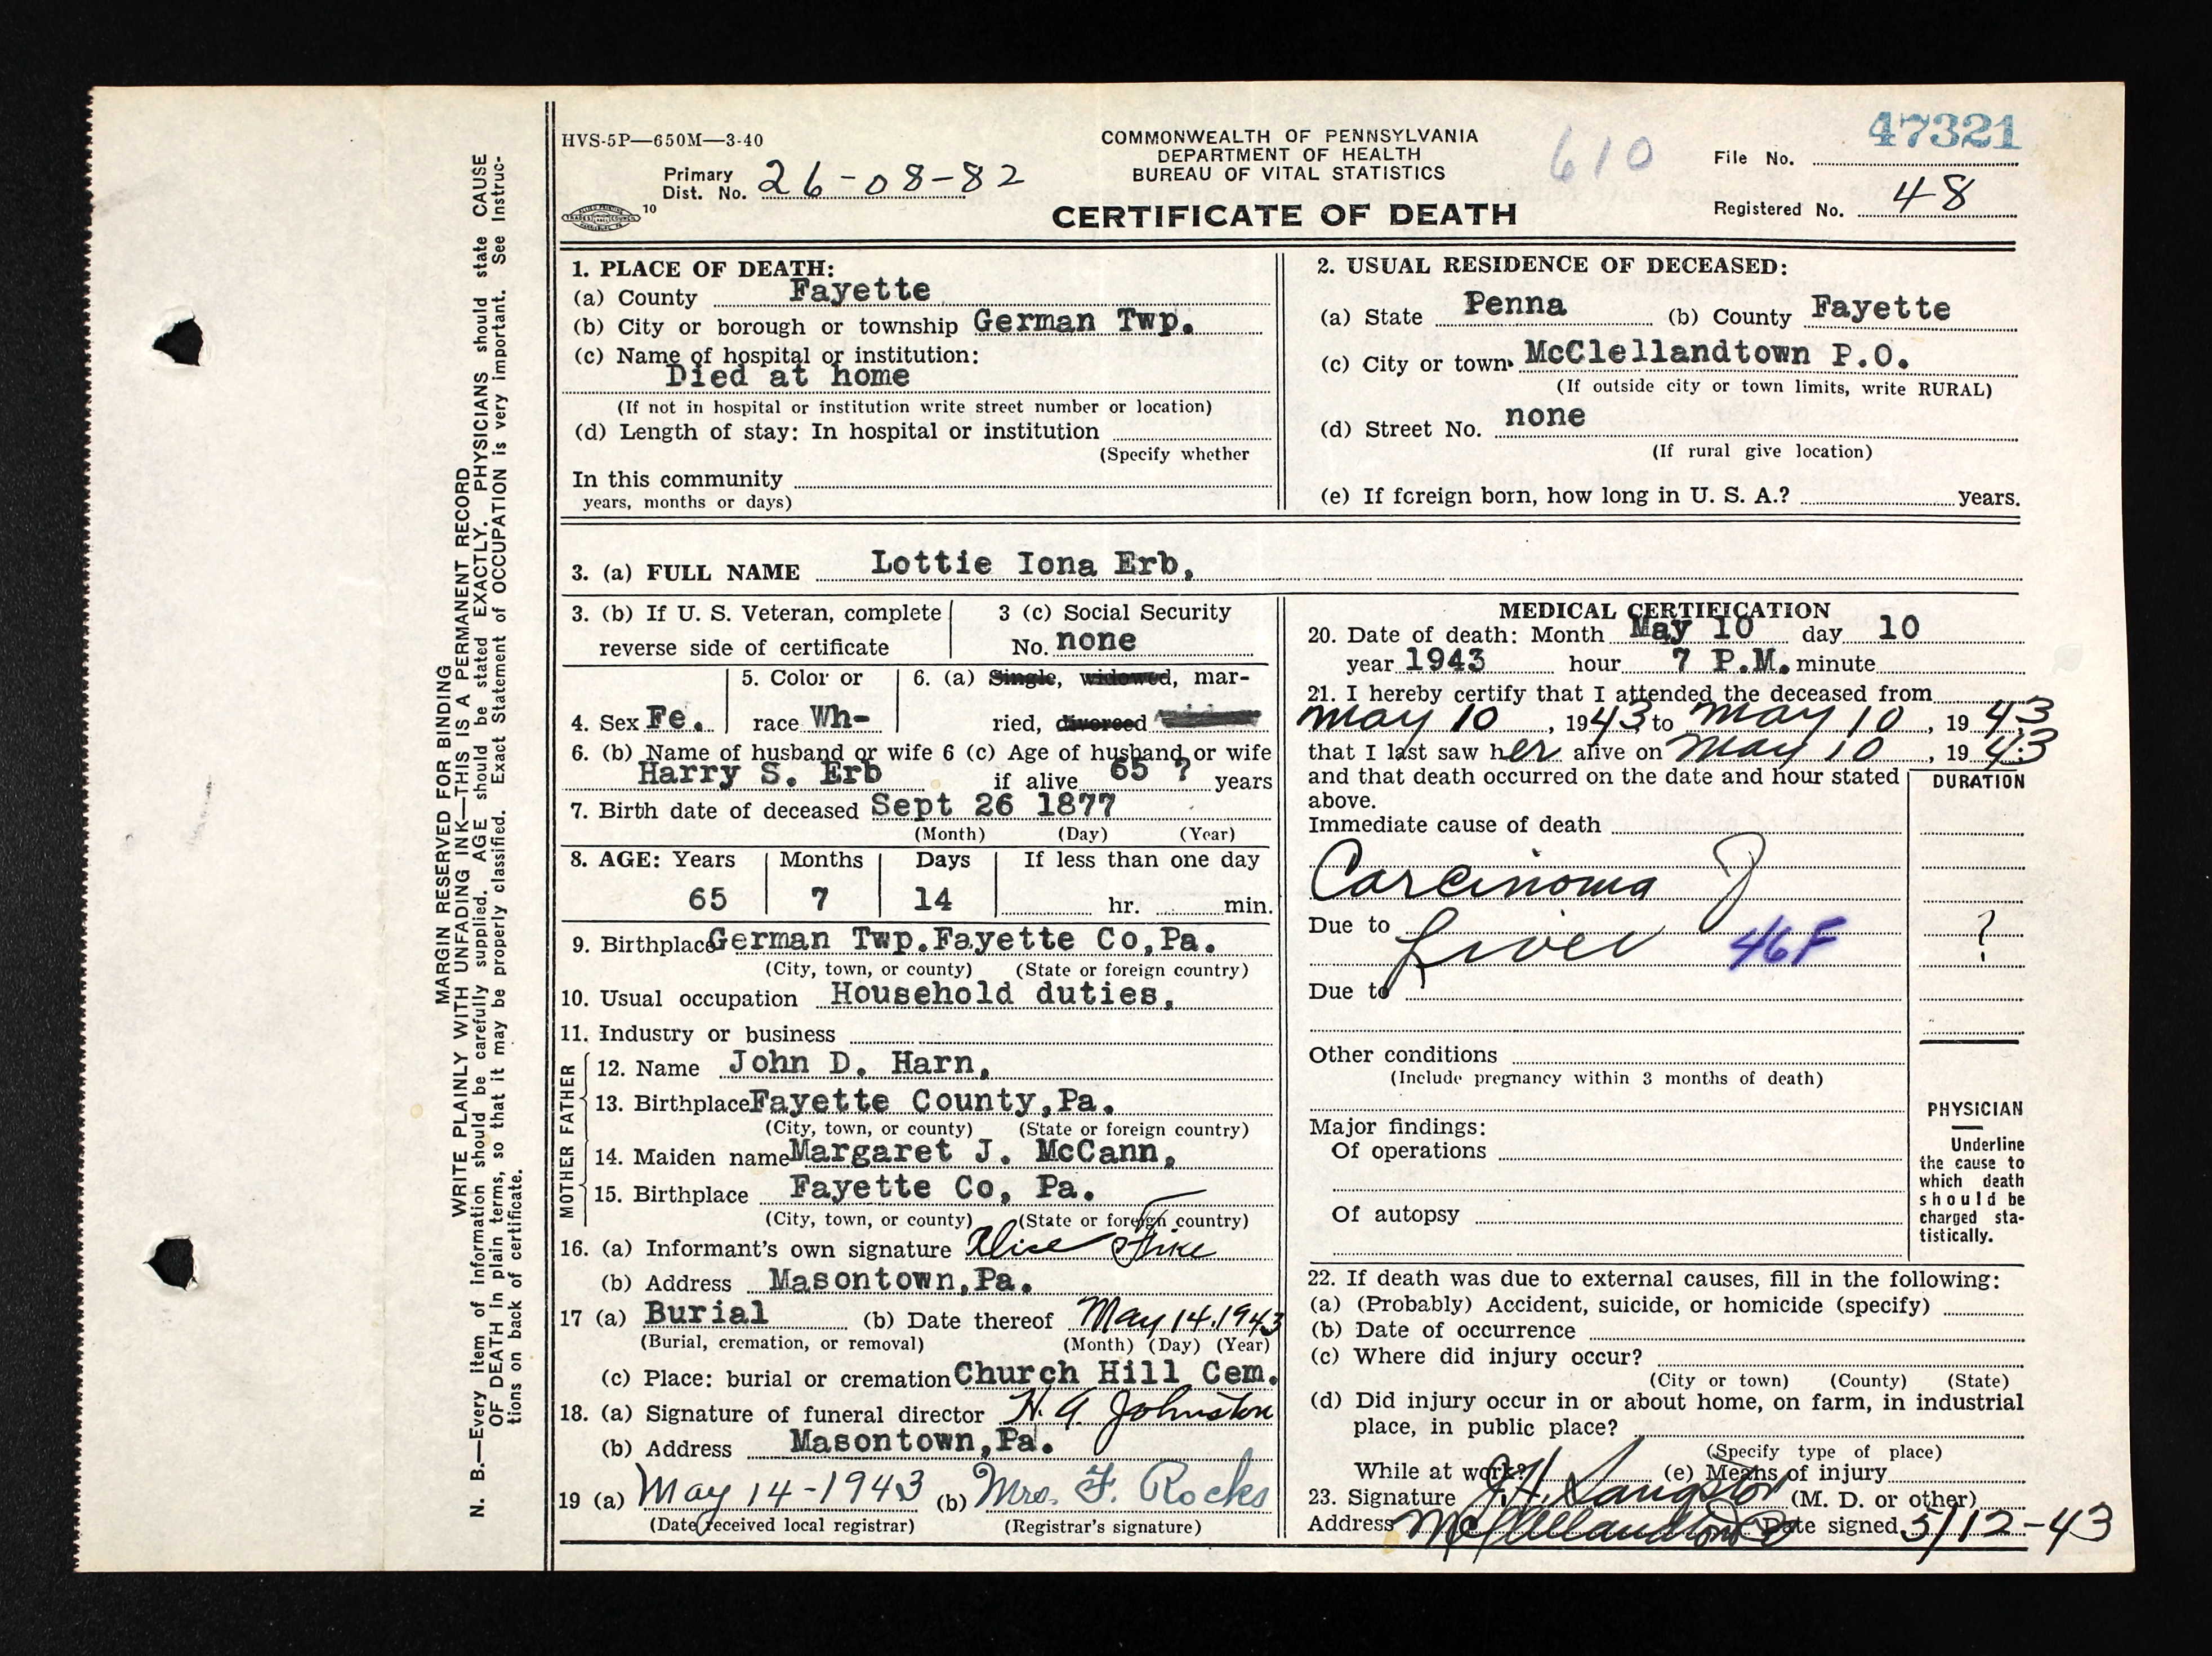 HVS-5P—650M—3-40
COMMONWEALTH OF PENNSYLVANIA
DEPARTMENT OF HEALTH
BUREAU OF VITAL STATISTICS
610
47321
File No.
Primary
Dist. No. 26-08-82
10
CERTIFICATE OF DEATH
Registered No. 48
MARGIN RESERVED FOR BINDING
WRITE PLAINLY WITH UNFADING INK—THIS IS A PERMANENT RECORD
N. B.—Every item of information should be carefully supplied. AGE should be stated EXACTLY. PHYSICIANS should state CAUSE
OF DEATH in plain terms, so that it may be properly classified. Exact Statement of OCCUPATION is very important. See Instruc-
tions on back of certificate.
1. PLACE OF DEATH:
(a) County Fayette
(b) City or borough or township German Twp.
(c) Name of hospital or institution:
Died at home
(If not in hospital or institution write street number or location)
(d) Length of stay: In hospital or institution
(Specify whether
In this community
years, months or days)
2. USUAL RESIDENCE OF DECEASED:
(a) State Penna (b) County Fayette
(c) City or town McClellandtown P.O.
(If outside city or town limits, write RURAL)
(d) Street No. none
(If rural give location)
(e) If foreign born, how long in U. S. A.? years.
3. (a) FULL NAME Lottie Iona Erb,
3. (b) If U. S. Veteran, complete
reverse side of certificate
3 (c) Social Security
No. none
4. Sex Fe.
5. Color or
race Wh-
6. (a) Single, widowed, mar-
ried, divorced
6. (b) Name of husband or wife 6 (c) Age of husband or wife
Harry S. Erb if alive 65 ? years
7. Birth date of deceased Sept 26 1877
(Month) (Day) (Year)
8. AGE: Years Months Days If less than one day
65 7 14 hr. min.
9. Birthplace German Twp.Fayette Co,Pa.
(City, town, or county) (State or foreign country)
10. Usual occupation Household duties,
11. Industry or business
FATHER
12. Name John D. Harn,
13. Birthplace Fayette County,Pa.
(City, town, or county) (State or foreign country)
MOTHER
14. Maiden name Margaret J. McCann,
15. Birthplace Fayette Co, Pa.
(City, town, or county) (State or foreign country)
16. (a) Informant's own signature Alice Fike
(b) Address Masontown,Pa.
17 (a) Burial (b) Date thereof May 14.1943
(Burial, cremation, or removal) (Month) (Day) (Year)
(c) Place: burial or cremation Church Hill Cem.
18. (a) Signature of funeral director H. A. Johnston
(b) Address Masontown,Pa.
19 (a) May 14-1943 (b) Mrs. F. Rocks
(Date received local registrar) (Registrar's signature)
MEDICAL CERTIFICATION
20. Date of death: Month May 10 day 10
year 1943 hour 7 P.M. minute
21. I hereby certify that I attended the deceased from
May 10, 1943 to May 10, 1943
that I last saw her alive on May 10, 1943
and that death occurred on the date and hour stated
above.
DURATION
Immediate cause of death
Carcinoma of
Due to Liver 46F ?
Due to
Other conditions
(Include pregnancy within 3 months of death)
Major findings:
Of operations
Of autopsy
PHYSICIAN
Underline
the cause to
which death
should be
charged sta-
tistically.
22. If death was due to external causes, fill in the following:
(a) (Probably) Accident, suicide, or homicide (specify)
(b) Date of occurrence
(c) Where did injury occur?
(City or town) (County) (State)
(d) Did injury occur in or about home, on farm, in industrial
place, in public place?
(Specify type of place)
While at work? (e) Means of injury
23. Signature J. H. Sangston (M. D. or other)
Address McClellandtown Date signed 5/12-43